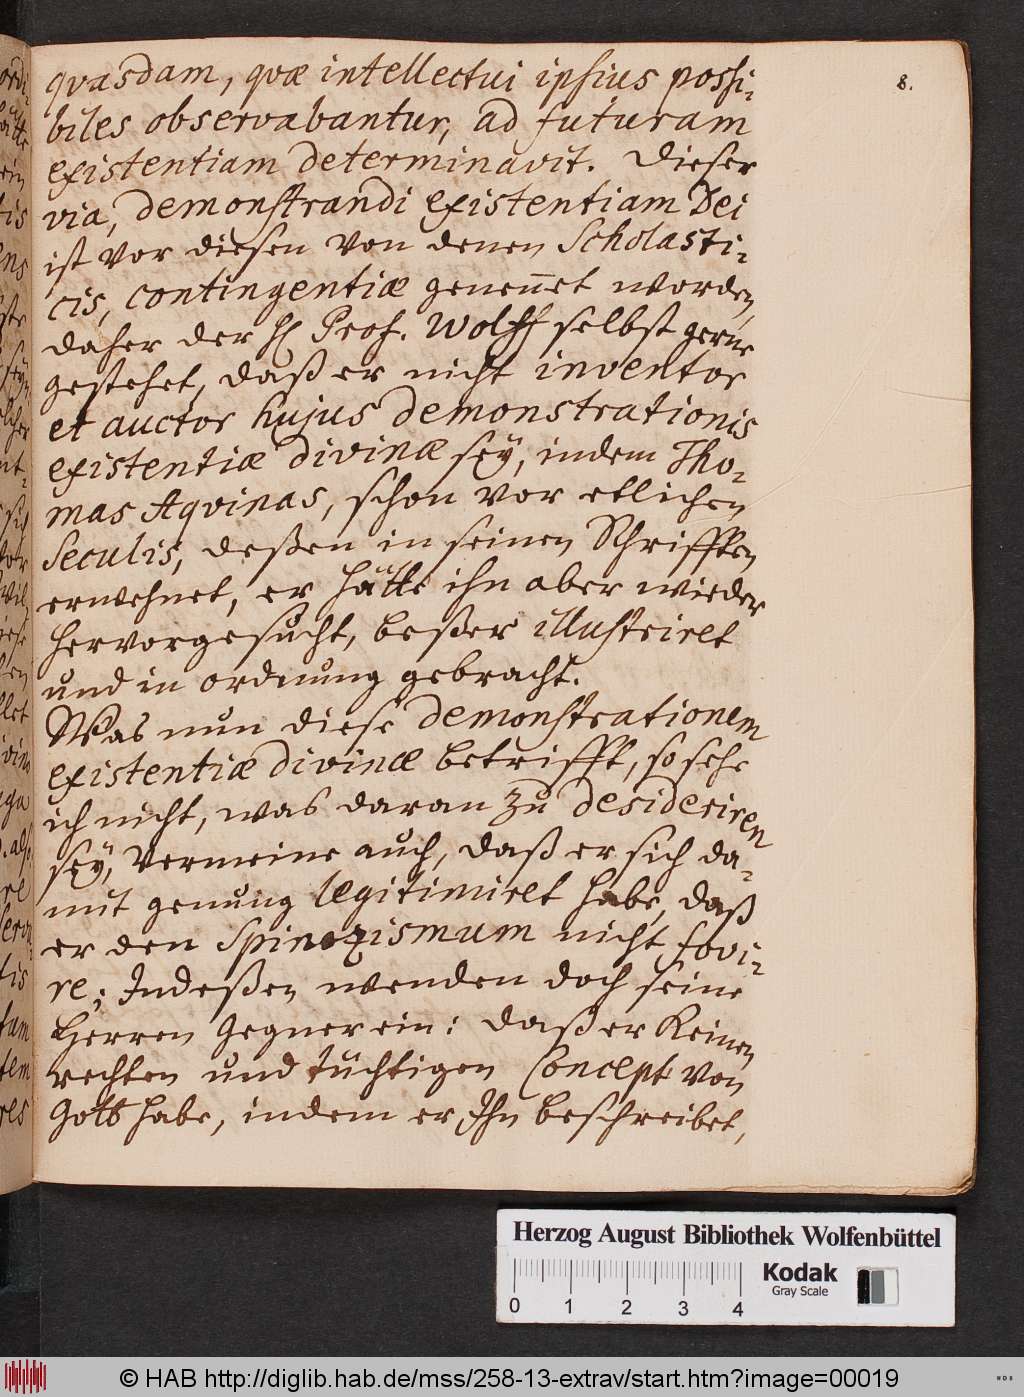 8.
quasdam, quæ intellectui ipsius possi-
biles observabantur, ad futuram
existentiam determinavit. Dieser
via, demonstrandi existentiam Dei
ist vor diesen von denen Scholasti-
cis, contingentiæ genennet worden,
daher der H Prof. Wolff selbst gerne
gestehet, daß er nicht inventor
et auctor hujus demonstrationis
existentiæ divinæ seÿ, indem Tho-
mas Aqvinas, schon vor etlichen
Seculis, deßen in seinen Schrifften
erwehnet, er hätte ihn aber wieder
hervorgesucht, beßer illustriret
und in ordnung gebracht.
Was nun diese demonstrationem
existentiæ divinæ betrifft, so sehe
ich nicht, was daran zu desideriren
seÿ, Vermeine auch, daß er sich da-
mit genung legitimiret habe, daß
er den Spinozismum nicht fovi-
re; Indeßen wenden doch seine
Herren Gegner ein: daß er Keinen
rechten und tüchtigen Concept von
Gott habe, indem er Ihn beschreibet,
Herzog August Bibliothek Wolfenbüttel
Kodak
Gray Scale
0 1 2 3 4
© HAB http://diglib.hab.de/mss/258-13-extrav/start.htm?image=00019